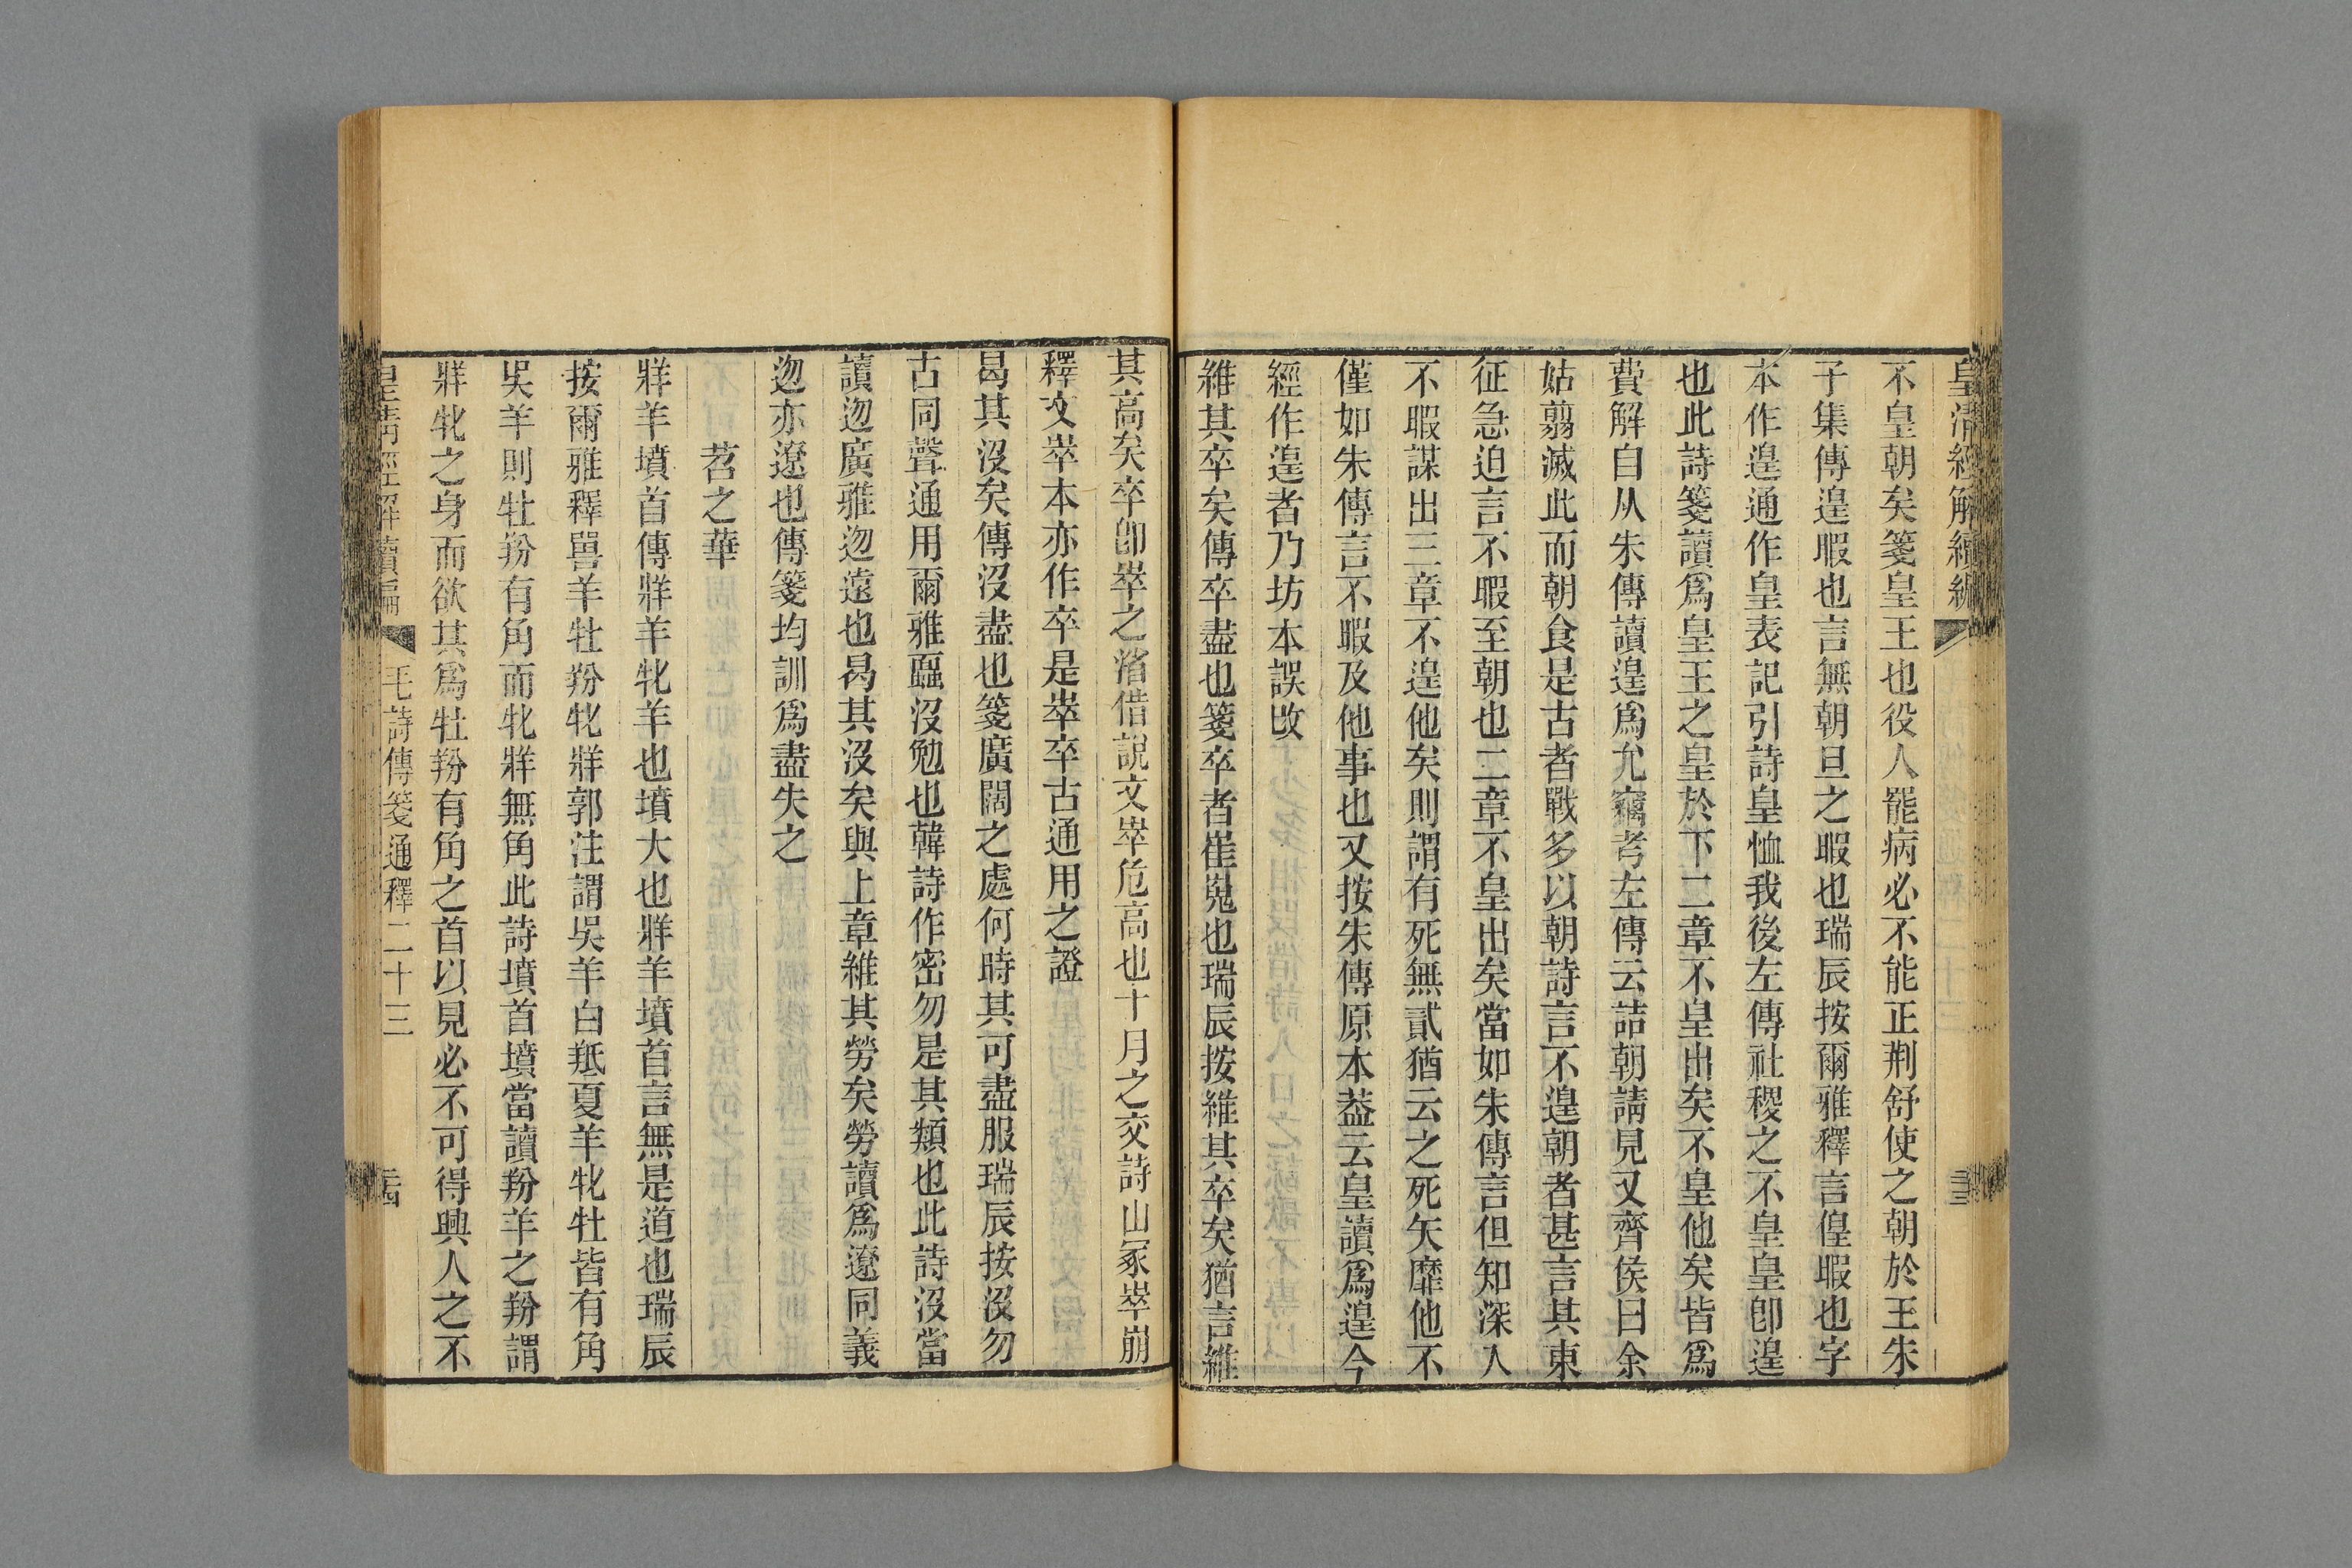 皇清經解續編
不皇朝矣箋皇王也役人罷病必不能正荆舒使之朝於王朱
子集傳遑暇也言無朝旦之暇也瑞辰按爾雅釋言偟暇也字
本作遑通作皇表記引詩皇恤我後左傳社稷之不皇皇卽遑
也此詩箋讀爲皇王之皇於下二章不皇出矣不皇他矣皆爲
費解自从朱傳讀遑爲允竊考左傳云詰朝請見又齊侯曰余
姑翦滅此而朝食是古者戰多以朝詩言不遑朝者甚言其東
征急迫言不暇至朝也二章不皇出矣當如朱傳言但知深入
不暇謀出三章不遑他矣則謂有死無貳猶云之死矢靡他不
僅如朱傳言不暇及他事也又按朱傳原本葢云皇讀爲遑今
經作遑者乃坊本誤改
維其卒矣傳卒盡也箋卒者崔嵬也瑞辰按維其卒矣猶言維
其高矣卒卽崒之渻借說文崒危高也十月之交詩山冢崒崩
釋文崒本亦作卒是崒卒古通用之證
曷其沒矣傳沒盡也箋廣闊之處何時其可盡服瑞辰按沒勿
古同聲通用爾雅蠠沒勉也韓詩作密勿是其類也此詩沒當
讀迿廣雅迿遠也曷其沒矣與上章維其勞矣勞讀爲遼同義
迿亦遼也傳箋均訓爲盡失之
苕之華
牂羊墳首傳牂羊牝羊也墳大也牂羊墳首言無是道也瑞辰
按爾雅釋嘼羊牡羒牝牂郭注謂吳羊白羝夏羊牝牡皆有角
吳羊則牡羒有角而牝牂無角此詩墳首墳當讀羒羊之羒謂
牂牝之身而欲其爲牡羒有角之首以見必不可得興人之不
皇清經解續編　毛詩傳箋通釋二十三